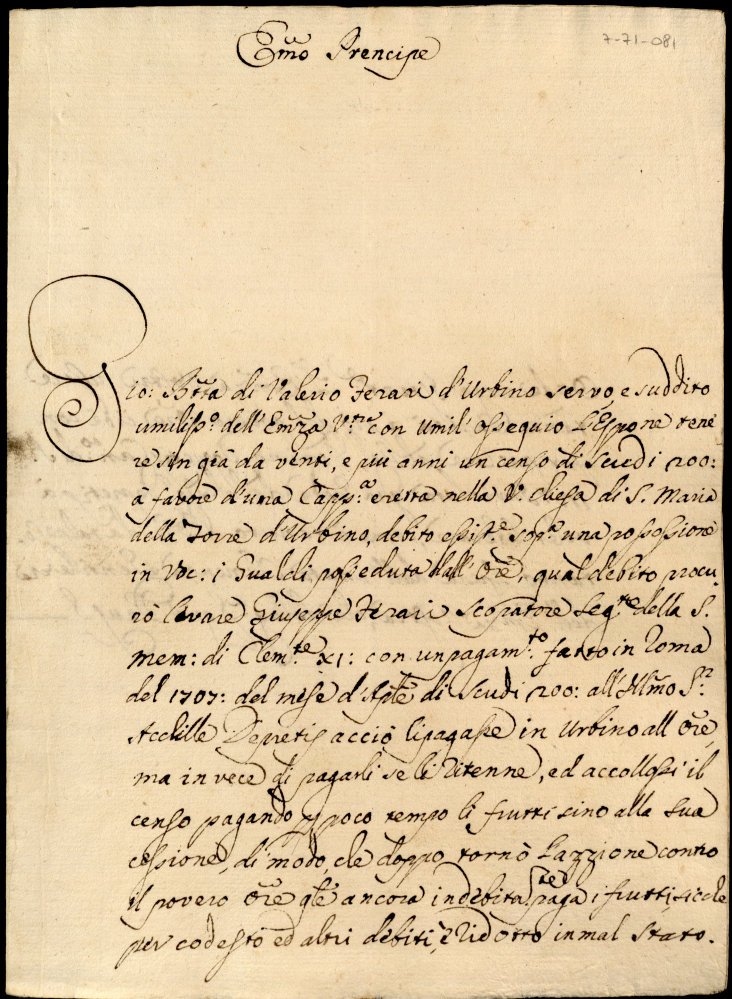 Em̃o Prencipe
7-71-081
Gio: Bt̃ta di Valerio Ferari d'Urbino servo, e suddito
umiliss.º dell'Em̃za V.ʳᵃ con umil' ossequio L'Espone tene
re sin già da venti, e più anni un censo di Scudi 200:
à favore d'una Capp.ª eretta nella V. chiesa di S. Maria
della Torre d'Urbino, debito esist.ᵉ sop.ª una possessione
in Voc: i Gualdi posseduta dall' Ore, qual debito procu
rò levare Giuseppe Ferari scopatore seg.ᵗᵒ della S.
mem: di Clem.ᵗᵉ XI: con un pagam.ᵗᵒ fatto in Roma
del 1707: del mese d'Aple di Scudi 200: all' Illm̃o S.ʳ
Acchille Depretis acciò li pagasse in Urbino all Ore,
ma in vece di pagarli se li ritenne, ed accollossi il
censo pagando p poco tempo li frutti sino alla sua
cessione, di modo, che doppo tornò L'azzione contro
il povero Ore qle ancora indebitam.ᵗᵉ paga i frutti sicche
per codesto ed altri debiti, è ridotto in mal stato.